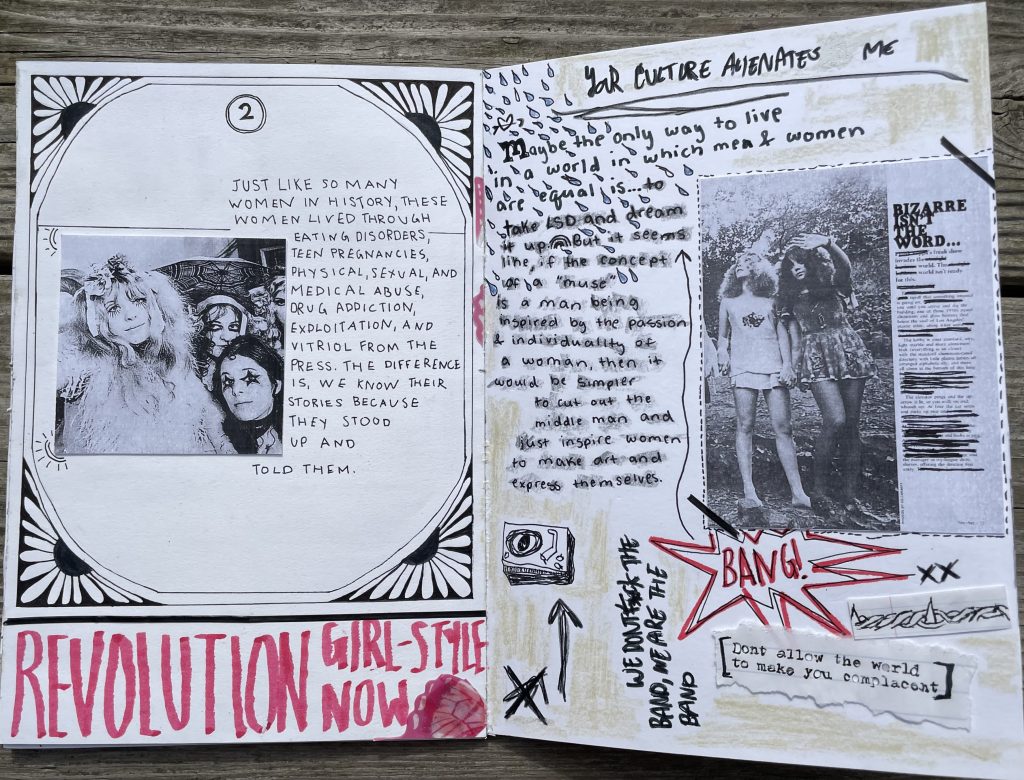 2
JUST LIKE SO MANY
WOMEN IN HISTORY, THESE
WOMEN LIVED THROUGH
EATING DISORDERS,
TEEN PREGNANCIES,
PHYSICAL, SEXUAL, AND
MEDICAL ABUSE,
DRUG ADDICTION,
EXPLOITATION, AND
VITRIOL FROM THE
PRESS. THE DIFFERENCE
IS, WE KNOW THEIR
STORIES BECAUSE
THEY STOOD
UP AND
TOLD THEM.
REVOLUTION GIRL-STYLE
NOW
YOUR CULTURE ALIENATES ME
Maybe the only way to live
in a world in which men & women
are equal is... to
take LSD and dream
it up. But it seems
like, if the concept
of a "muse"
is a man being
inspired by the passion
& individuality of
a woman, then it
would be simpler
to cut out the
middle man and
just inspire women
to make art and
express themselves.
BIZARRE
ISN'T
THE
WORD...
world isn't ready
for this.
WE DON'T FUCK THE
BAND, WE ARE THE
BAND
BANG!
XX
[Dont allow the world
to make you complacent]